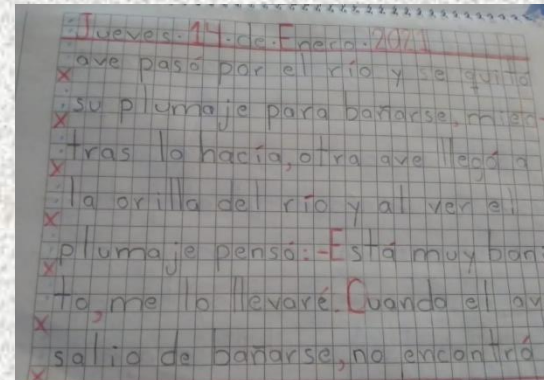 Jueves.14.de.Enero.2021
ave pasó por el río y se quitó
su plumaje para bañarse, mien-
tras lo hacía, otra ave llegó a
la orilla del río y al ver el
plumaje pensó:-Está muy boni
to, me lo llevaré. Cuando el av
salió de bañarse, no encontró